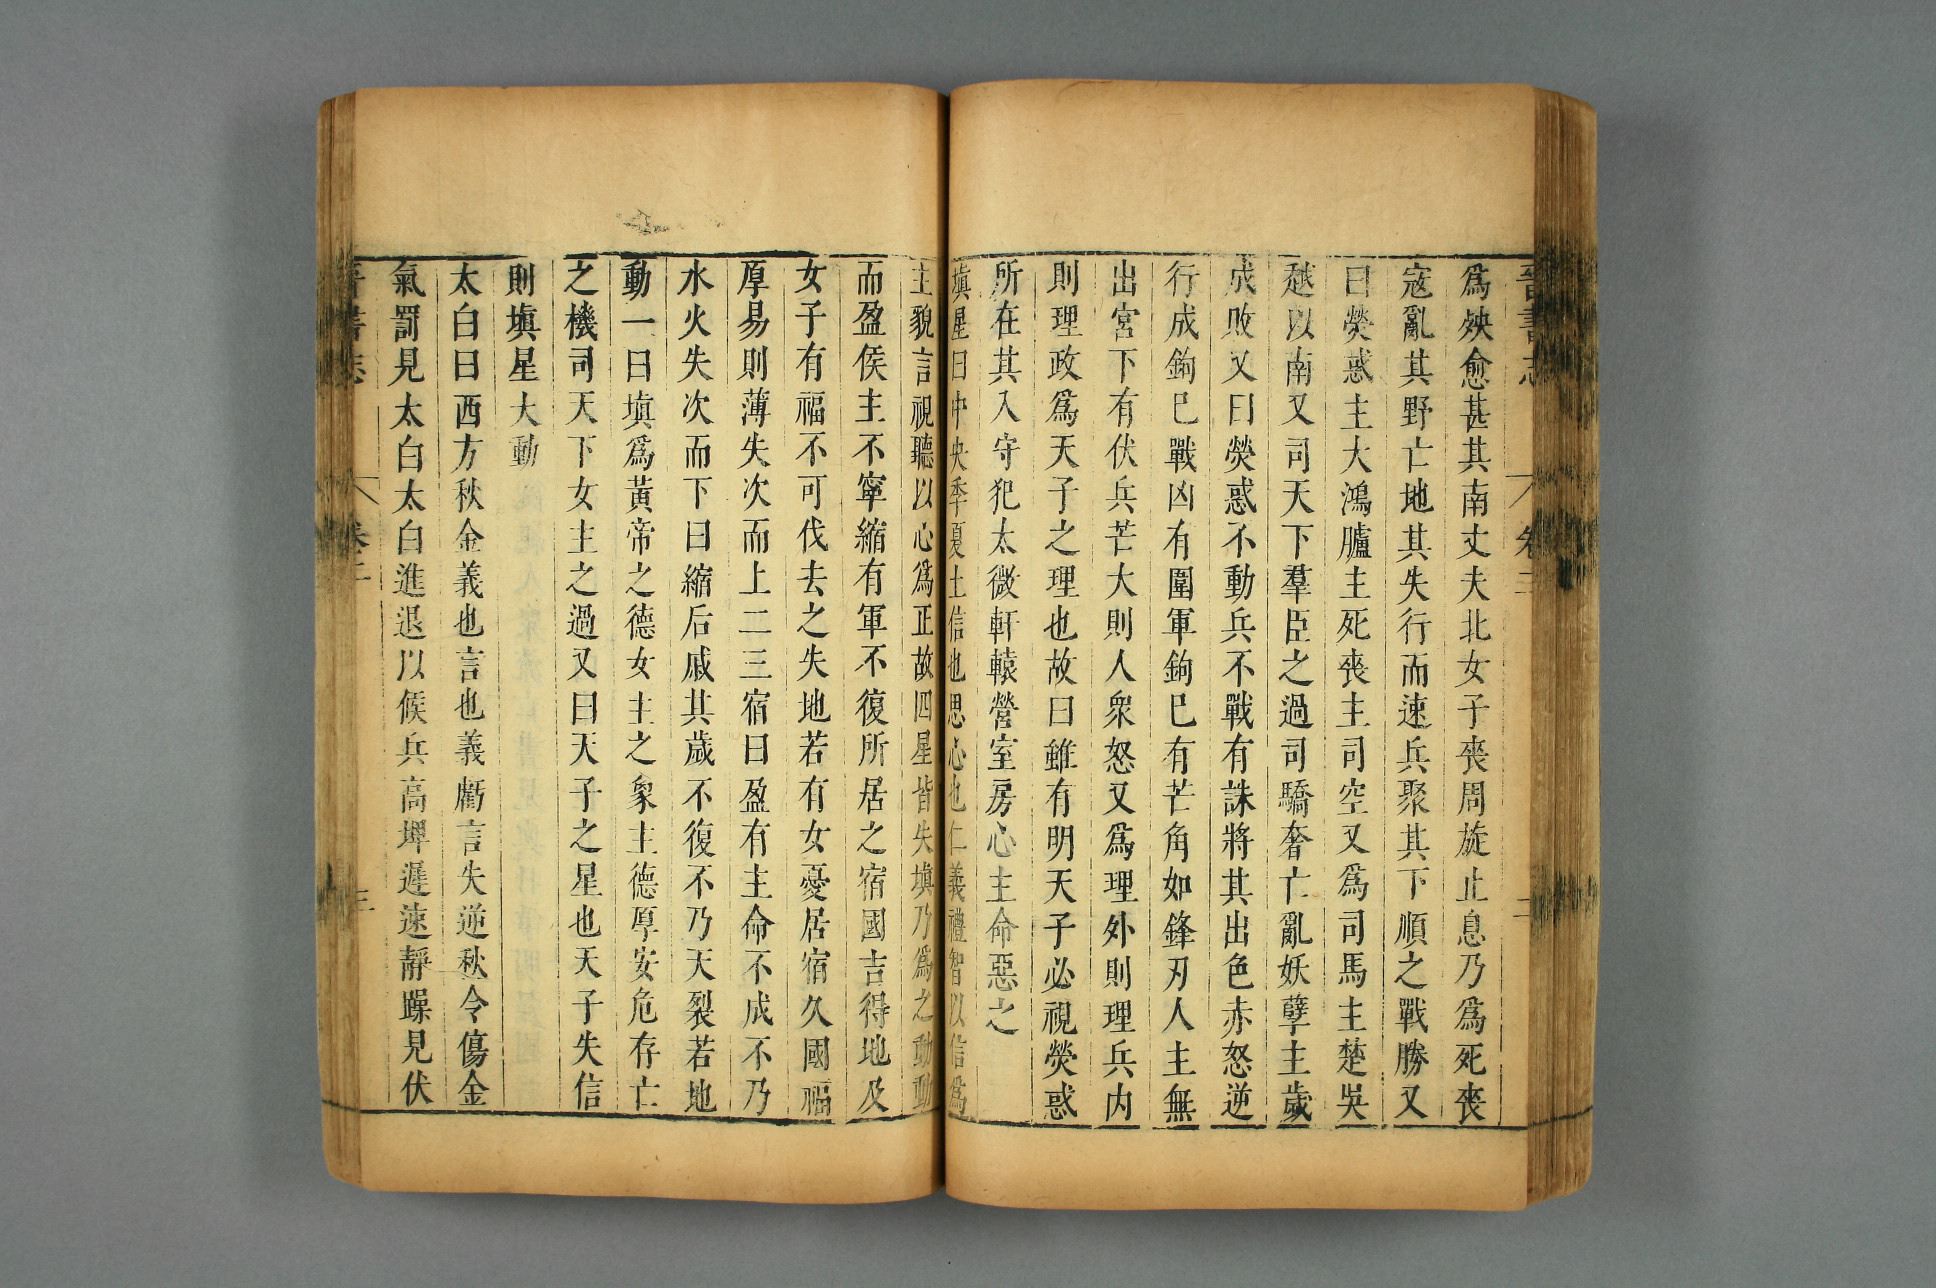 晉書志 卷二 二
爲殃愈甚其南丈夫北女子喪周旋止息乃爲死喪
寇亂其野亡地其失行而速兵聚其下順之戰勝又
曰熒惑主大鴻臚主死喪主司空又爲司馬主楚吳
越以南又司天下羣臣之過司驕奢亡亂妖孽主歲
成敗又曰熒惑不動兵不戰有誅將其出色赤怒逆
行成鉤巳戰凶有圍軍鉤巳有芒角如鋒刃人主無
出宮下有伏兵芒大則人衆怒又爲理外則理兵内
則理政爲天子之理也故曰雖有明天子必視熒惑
所在其入守犯太微軒轅營室房心主命惡之
塡星曰中央季夏土信也思心也仁義禮智以信爲
主貌言視聽以心爲正故四星皆失塡乃爲之動動
而盈侯主不寧縮有軍不復所居之宿國吉得地及
女子有福不可伐去之失地若有女憂居宿久國福
厚易則薄失次而上二三宿曰盈有主命不成不乃
水火失次而下曰縮后戚其歲不復不乃天裂若地
動一曰塡爲黃帝之德女主之象主德厚安危存亡
之機司天下女主之過又曰天子之星也天子失信
則塡星大動
太白曰西方秋金義也言也義虧言失逆秋令傷金
氣罰見太白太白進退以候兵高埤遲速靜躁見伏
晉書志 卷二 三